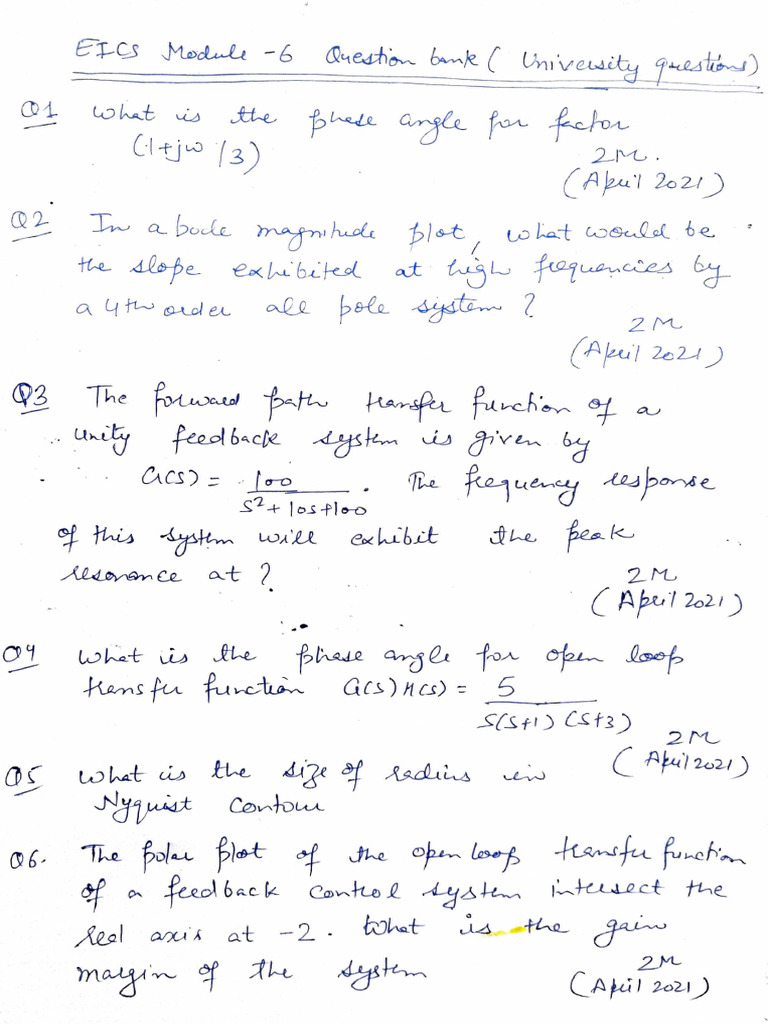 EICS Module -6 Question bank ( University questions)
Q1 What is the phase angle for factor
(1+jω/3) 2M.
(April 2021)
Q2 In a bode magnitude plot, what would be
the slope exhibited at high frequencies by
a 4th order all pole system ?
2M
(April 2021)
Q3 The forward path transfer function of a
unity feedback system is given by
G(s) = 100 / s²+10s+100 . The frequency response
of this system will exhibit the peak
resonance at ? 2M
(April 2021)
Q4 What is the phase angle for open loop
transfer function G(s)H(s) = 5 / s(s+1)(s+3)
2M
(April 2021)
Q5 What is the size of radius in
Nyquist Contour
Q6. The polar plot of the open loop transfer function
of a feedback control system intersect the
real axis at -2. What is the gain
margin of the system 2M
(April 2021)